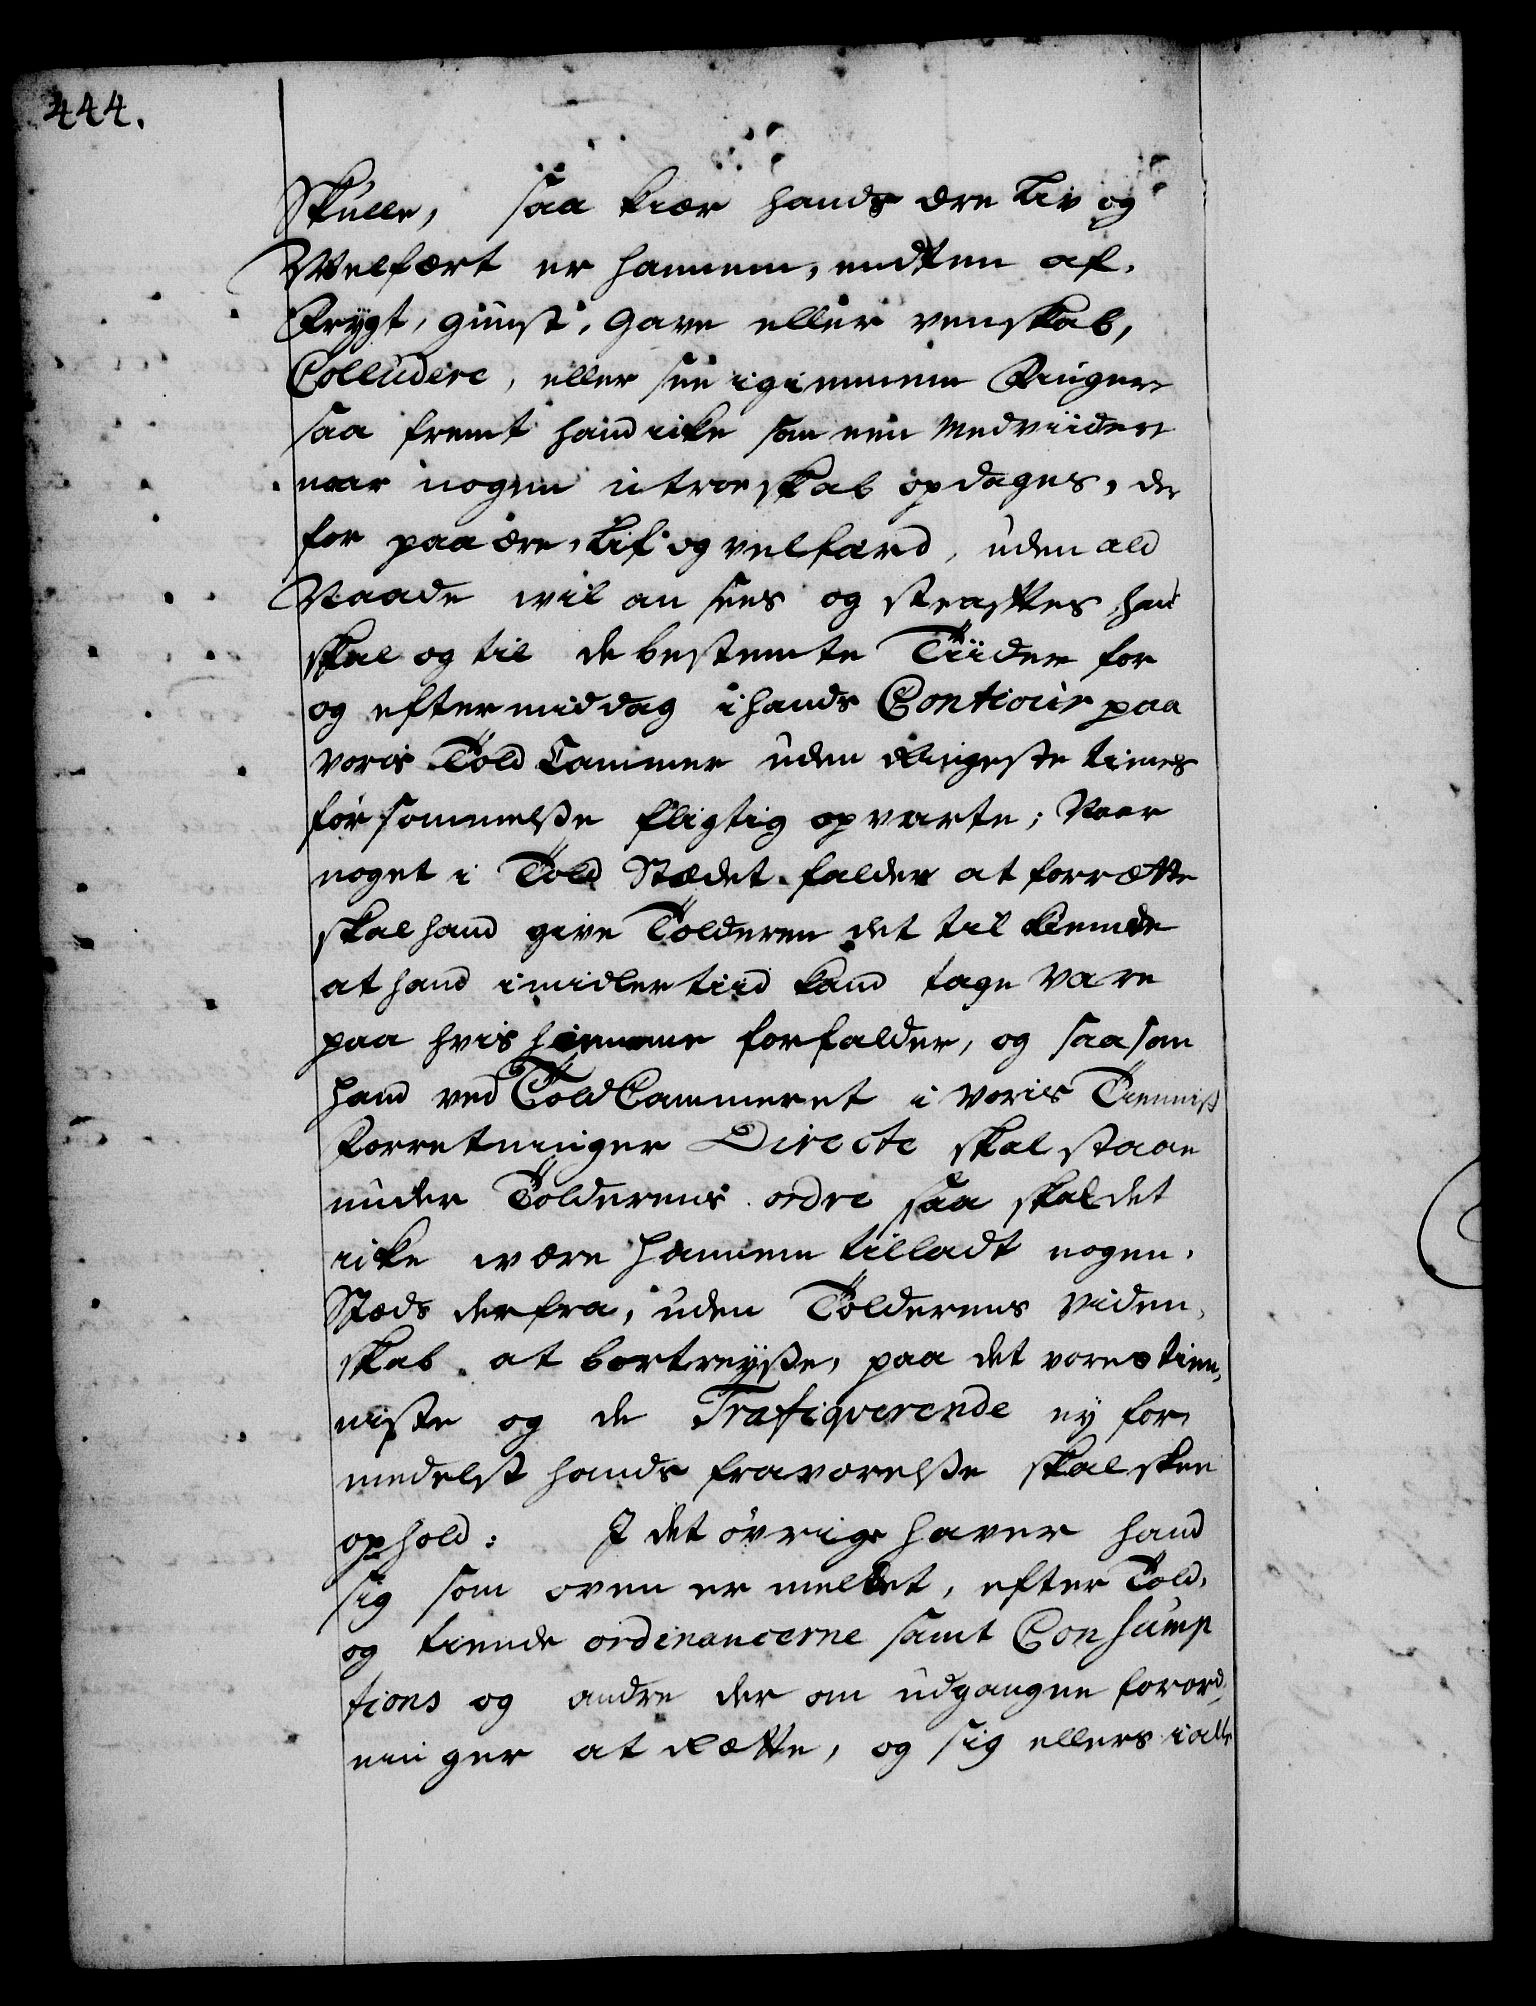 444.
Skulle, saa kier hands ære Liv og
Welfært er hannem, endten af
Frygt, gunst, gave eller venskab,
Colludere, eller see igiennem Finger
saa fremt hand icke som een medviider
naar nogen utroeskab opdages, der
for paa ære, Lif og velfærd, uden ald
Naade wil an sees og straffes, hand
skal og til de bestemte Tiider for
og eftermiddag i hands Contioir paa
voris Told Cammer uden Ringeste times
forsommelsse fligtig opvarte; Naar
noget i Told Stædet falder at forrætte
skal hand give Tolderen det til kiende
at hand imidlertiid kand tage vare
paa hvis hiemme forfalder, og saasom
hand ved ToldCammeret i voris Tienniste
Forretninger Directe skal staae
under Tolderens ordre saa skal det
icke være hannem tilladt nogen
Stæds derfra, uden Tolderens viden
skab at bortreysse, paa det vores tien
niste og de Trafiqverende ey for
medelst hands fraværelsse skal skee
ophold: I det øvrige haver hand
sig som oven er meldet, efter Told
og tiende ordinancerne samt Consump
tions og andre der om udgangne forord
ninger at Rætte, og sig ellers i alle